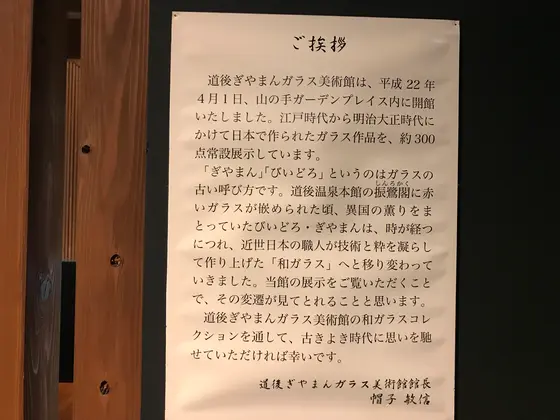 ご挨拶
道後ぎやまんガラス美術館は、平成 22 年
4月1日、山の手ガーデンプレイス内に開館
いたしました。江戸時代から明治大正時代に
かけて日本で作られたガラス作品を、約300
点常設展示しています。
「ぎやまん」「びいどろ」というのはガラスの
古い呼び方です。道後温泉本館の振鷺閣に赤
しんろかく
いガラスが嵌められた頃、異国の薫りをま
とっていたびいどろ・ぎやまんは、時が経つ
につれ、近世日本の職人が技術と粋を凝らし
て作り上げた「和ガラス」へと移り変わって
いきました。当館の展示をご覧いただくこと
で、その変遷が見てとれることと思います。
道後ぎやまんガラス美術館の和ガラスコレ
クションを通して、古きよき時代に思いを馳
せていただければ幸いです。
道後ぎやまんガラス美術館館長
帽子 敏信